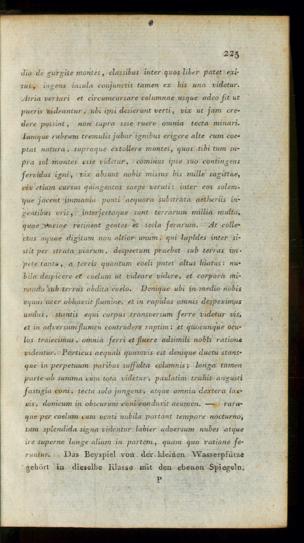 225
dio de gurgite montes, classibus inter quos liber patet exi-
tus, ingens insula conjunctis tamen ex his una videtur.
Atria versari et circumcursare columnae usque adeo fit ut
pueris videantur, ubi ipsi desierunt verti, vix ut jam cre-
dere possint, non supra sese ruere omnia tecta minari.
Iamque rubrum tremulis jubar ignibus erigere alte cum coe-
ptat natura, supraque extollere montes, quos tibi tum su-
pra sol montes esse videtur, cominus ipse suo contingens
fervidus igni, vix absunt nobis missus bis mille sagittae,
vix etiam cursus quingentos saepe veruti: inter eos solem-
que jacent immania ponti aequora substrata aetheriis in-
gentibus oris, interjectaque sunt terrarum millia multa,
quae variae retinent gentes et secla ferarum. At colle-
ctus aquae digitum non altior unum, qui lapides inter si-
stit per strata viarum, despectum praebet sub terras im-
pete tanto, a terris quantum coeli patet altus hiatus: nu-
bila despicere et coelum ut videare videre, et corpora mi-
rando sub terras abdita coelo. Denique ubi in medio nobis
equus acer obhaesit flumine, et in rapidas amnis despeximus
undas, stantis equi corpus transversum ferre videtur vis,
et in adversum flumen contrudere raptim; et quocunque ocu-
los traiecimus, omnia ferri et fluere adsimili nobis ratione
videntur. Porticus aequali quamvis est denique ductu stans-
que in perpetuum paribus suffulta columnis; longa tamen
parte ab summa cum tota videtur, paulatim trahit angusti
fastigia coni, tecta solo jungens, atque omnia dextera lae-
vis, donicum in obscurum coni conduxit acumen. — rara-
que per coelum cum venti nubila portant tempore nocturno,
tum splendida signa videntur labier adversum nubes atque
ire superne longe aliam in partem, quam quo ratione fe-
runtur. Das Beyspiel von der kleinen Wasserpfütze
gehört in dieselbe Klasse mit den ebenen Spiegeln.
P